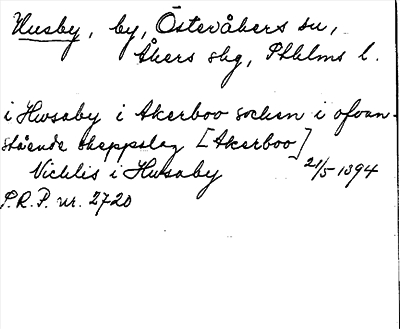 Husby, by, Österåkers sn,
Åkers skg, Sthlms l.
i Hwsaby i Akerboo sochen i ofvan-
stående skeppslag [Akerboo]
Nichlis i Hwsaby 21/5 1394
P.R.P. nr. 2720